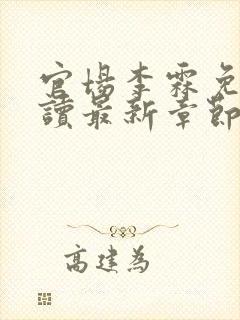 官場李霖免
讀最新章節
高建為